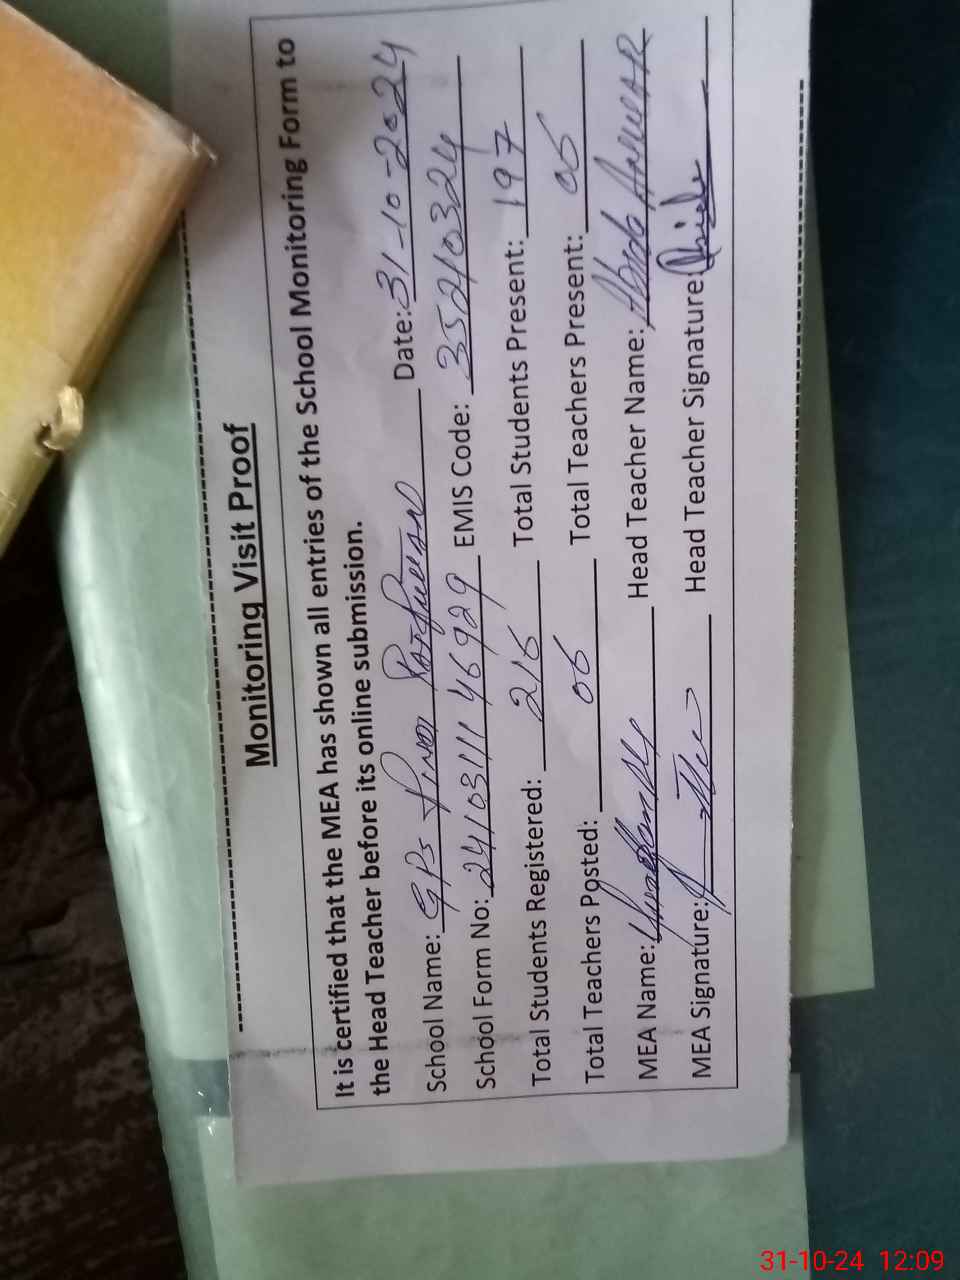 Monitoring Visit Proof
It is certified that the MEA has shown all entries of the School Monitoring Form to
the Head Teacher before its online submission.
School Name: GPS Pindi Date: 31-10-2024
School Form No: 24103111146929 EMIS Code: 35210324
Total Students Registered: 216 Total Students Present: 197
Total Teachers Posted: 06 Total Teachers Present: 05
MEA Name: Head Teacher Name:
MEA Signature: Head Teacher Signature:
31-10-24 12:09